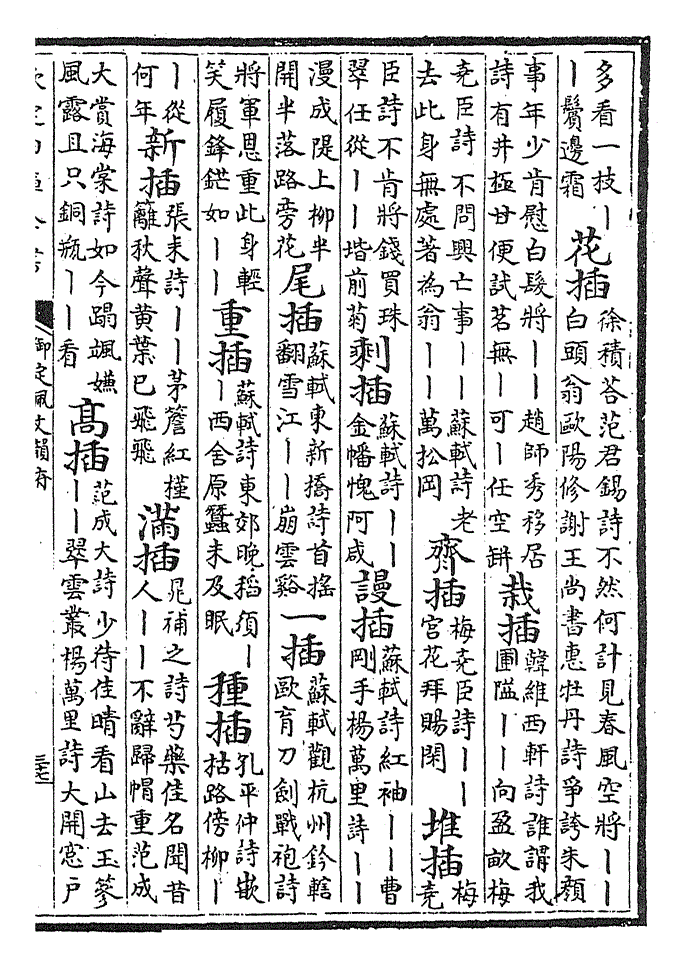 多看一枝丨
丨鬢邊霜
花插
徐積荅范君錫詩不然何計見春風空將丨丨
白頭翁歐陽修謝王尚書惠牡丹詩爭誇朱顔
事年少肯慰白髮將丨丨趙師秀移居
詩有井極甘便試茗無丨可丨任空缾
栽插
韓維西軒詩誰謂我
圃隘丨丨向盈畝梅
尭臣詩不問興亡事丨丨蘇軾詩老
去此身無處著為翁丨丨萬松岡
齊插
梅尭臣詩丨丨
宮花拜賜閑
堆插
梅
尭
臣詩不肯將錢買珠
翠任從丨丨堦前菊
剩插
蘇軾詩丨丨
金幡愧阿咸
謾插
蘇軾詩紅袖丨丨曹
剛手楊萬里詩丨丨
漫成隄上柳半
開半落路旁花
尾插
蘇軾東新橋詩首搖
翻雪江丨丨崩雲谿
一插
蘇軾觀杭州鈐轄
歐育刀劍戰袍詩
將軍恩重此身輕
笑履鋒鋩如丨丨
重插
蘇軾詩東郊晚稻須丨
丨西舍原蠶未及眠
種插
孔平仲詩嵌
枯路傍柳丨
丨從
何年
新插
張耒詩丨丨茅簷紅槿
籬秋聲黄葉已飛飛
滿插
晁補之詩芍藥佳名聞昔
人丨丨不辭歸帽重范成
大賞海棠詩如今蹋颯嫌
風露且只銅瓶丨丨看
高插
范成大詩少待佳晴看山去玉蔘
丨丨翠雲叢楊萬里詩大開窓戸
御定佩文韻府